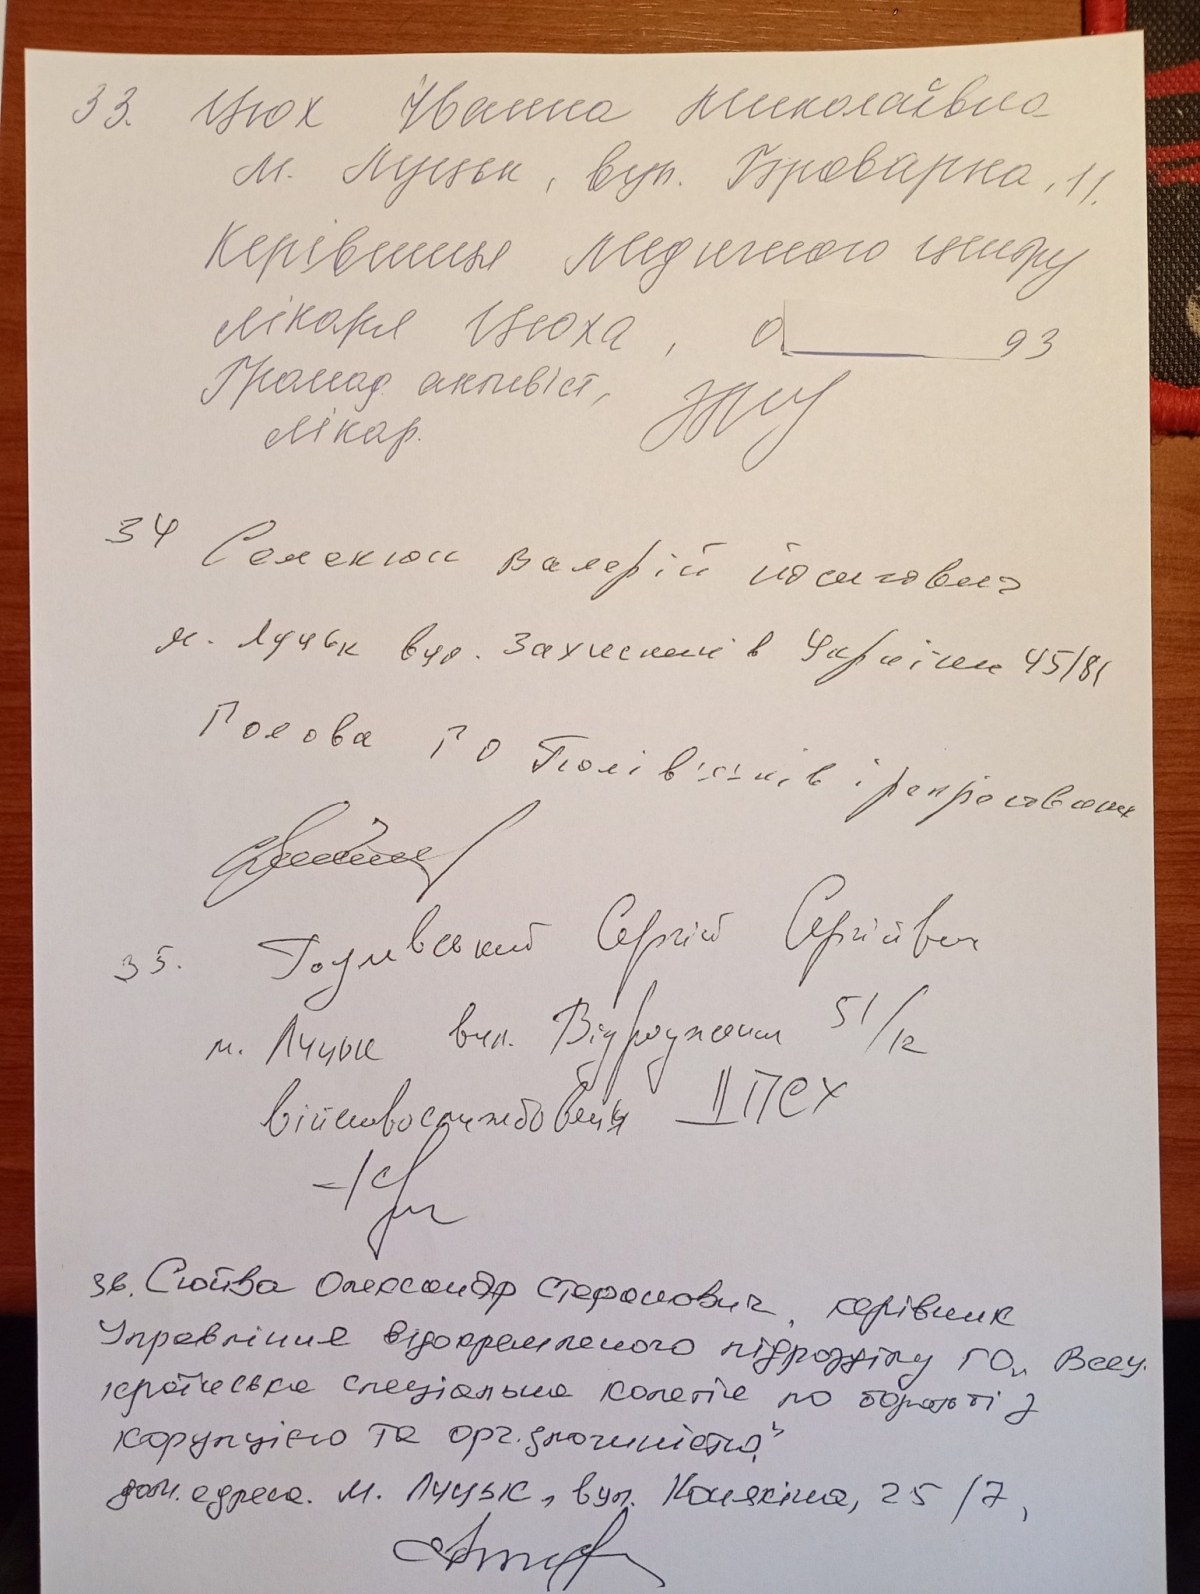 33. Цюх Іванна Миколаївна
м. Луцьк, вул. Броварна, 11.
Керівниця медичного центру
лікаря Цюха, 0 93
Громад. активіст,
лікар.
34 Семенюк Валерій Йосипович
м. Луцьк вул. Захисників України 45/81
Голова ГО Політв'язнів і репресованих
35. Сергій Сергійович
м. Луцьк вул. Відродження 51/12
військовослужбовець
36. Сюйва Олександр Стефанович, керівник
Управління відокремленого підрозділу ГО „Всеу-
країнська спеціальна колегія по боротьбі з
корупцією та орг. злочинністю"
дом. адреса. м. Луцьк, вул. Конякіна, 25/7,